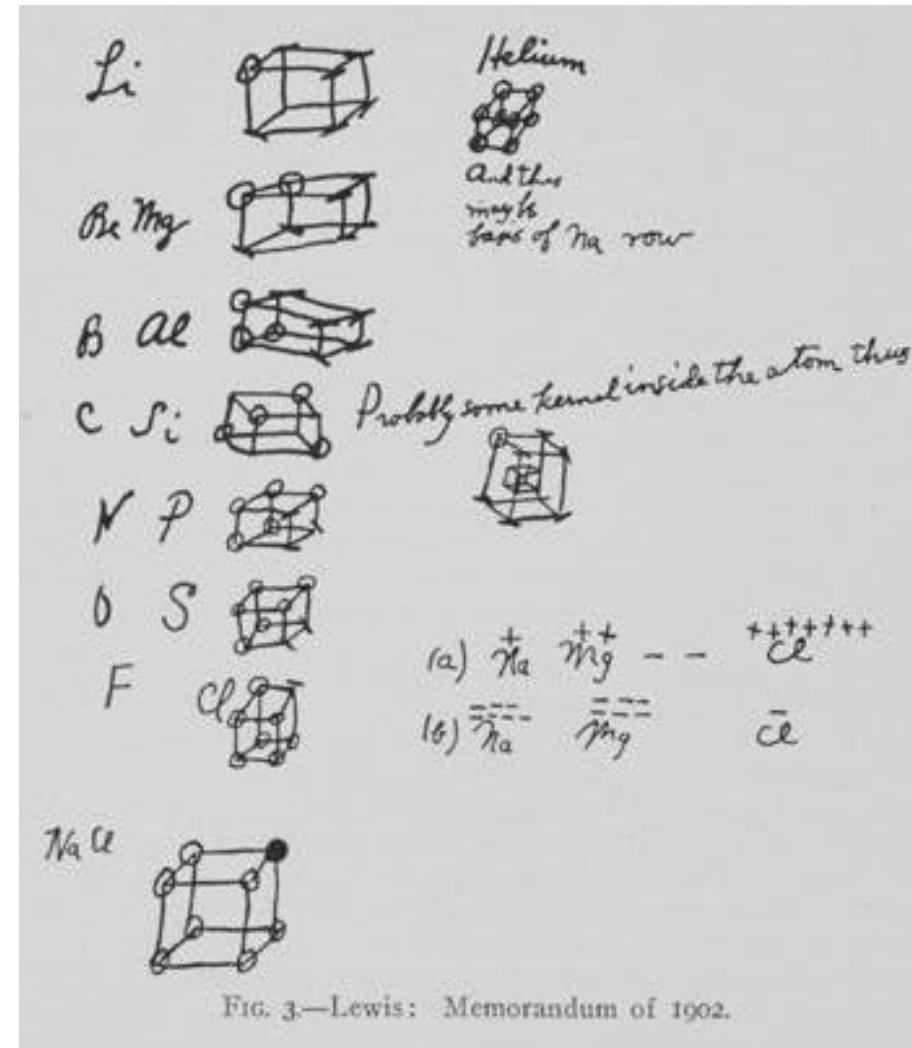 Li
Helium
And this
may be
base of Na row
Be Mg
B Al
C Si
Probably some kernel inside the atom thus
N P
O S
F Cl
(a) + ++ - - +++++++
Na Mg Cl
(b) ------ ------ -
Na Mg Cl
Na Cl
FIG. 3.—Lewis: Memorandum of 1902.